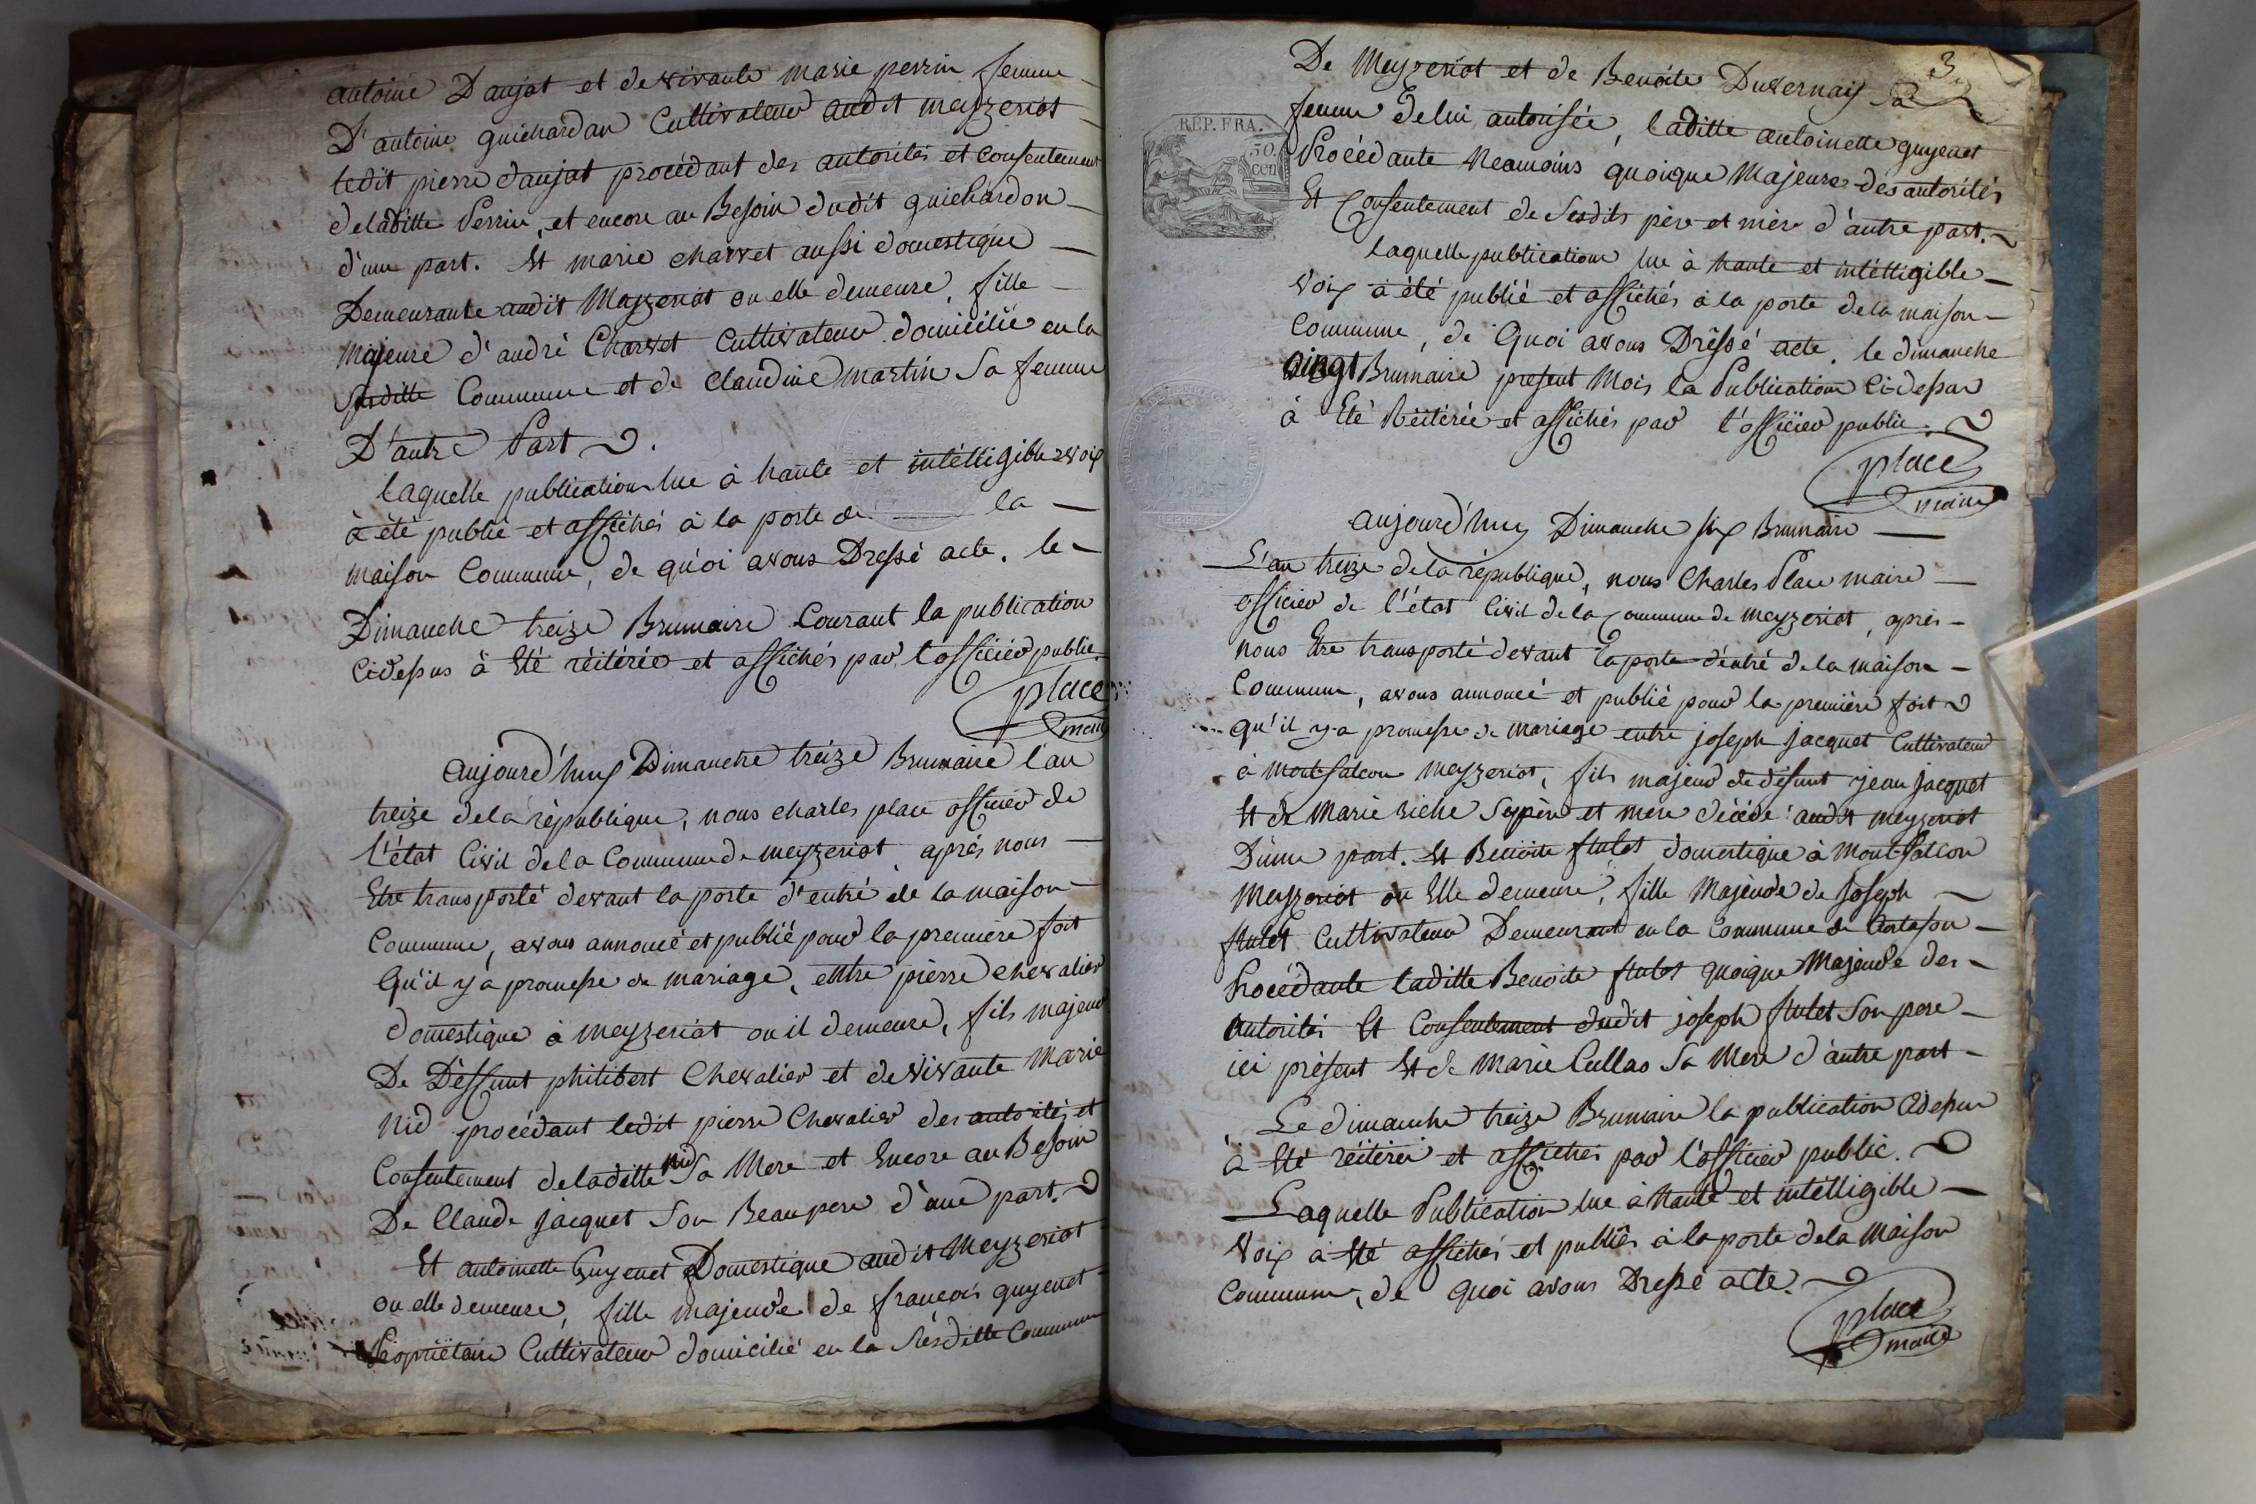 antoine Daujat et de vivante marie perrin femme
D'antoine guichardan Cultivateur audit meyzeriat
ledit pierre daujat procédant des autorités et consentement
deladitte Perrin, et encore au Besoin dudit guichardon
d'une part. Et marie charvet aussi domestique
Demeurante audit Meyzeriat ou elle demeure, fille
majeure d'andré Charvet Cultivateur domicilié en la
susditte Commune et de Claudine martin Sa femme
D'autre Part.
laquelle publication lue à haute et intélligible voix
à été publié et affichés à la porte de la
maison Commune, de quoi avons Dressé acte. le
Dimanche treize Brumaire Courant la publication
cidessus à Eté réitérée et affichés par l'officier public.
place
maire
aujourd'huy Dimanche treize Brumaire l'an
treize dela république, nous charles place officier de
l'état Civil dela Commune de meyzeriat, après nous
Etre transporté devant la porte d'entré de la maison
Commune, avons annoncé et publié pour la première foit
Qu'il y a promesse de mariage, entre pierre chevalier
domestique à meyzeriat ou il demeure, fils majeur
De Déffunt philibert Chevalier et de vivante Marie
nid procédant ledit pierre Chevalier des autorités et
Consentement deladitte nid Sa Mere et Encore au Besoin
De Claude jacquet Son Beau pere d'une part.
Et antoinette Guyenet Domestique audit Meyzeriat
ou elle demeure, fille majeure de francois guyenet
Propriétaire Cultivateur domicilié en la Susditte Commune
3
De Meyzeriat et de Benoite Duvernay Sa
femme de lui autorisée, laditte antoinette guyenet
Procédante Neamoins quoique Majeure des autorités
Et Consentement de Sesdits père et mère d'autre part.
REP. FRA.
50.
cen
laquelle publication lue à haute et intélligible
Voix à été publié et affichés à la porte dela maison
Commune, de Quoi avons Dréssé acte. le dimanche
vingt Brumaire present Mois la Publication Cidessus
à Eté Réitérée et affichés par l'officier public.
place
maire
aujourd'huy Dimanche six Brumaire
L'an treize dela république, nous Charles Place maire
officier de l'état Civil de la Commune de meyzeriat, après
nous Etre transporté devant la porte d'entré de la maison
Commune, avons annoncé et publié pour la première foit
qu'il y a promesse de mariage entre joseph jacquet Cultivateur
à montfalcon meyzeriat, fils majeur de défunt jean jacquet
Et de Marie riche Ses père et mere décédé audit meyzeriat
D'une part. Et Benoite flutet domestique à Montfalcon
Meyzeriat ou Elle demeure, fille Majeure de Joseph
flutet Cultivateur Demeurant en la Commune de
Procédante laditte Benoite flutet quoique Majeure des
autorités Et Consentement dudit joseph flutet Son pere
ici présent Et de marie Cullas Sa Mere d'autre part
Le dimanche treize Brumaire la publication Cidessus
à Eté réitérée et affichés par l'officier public.
Laquelle Publication lue à haute et intélligible
Voix à Eté affichés et publiés à la porte dela Maison
Commune, de quoi avons Dressé acte.
place
maire